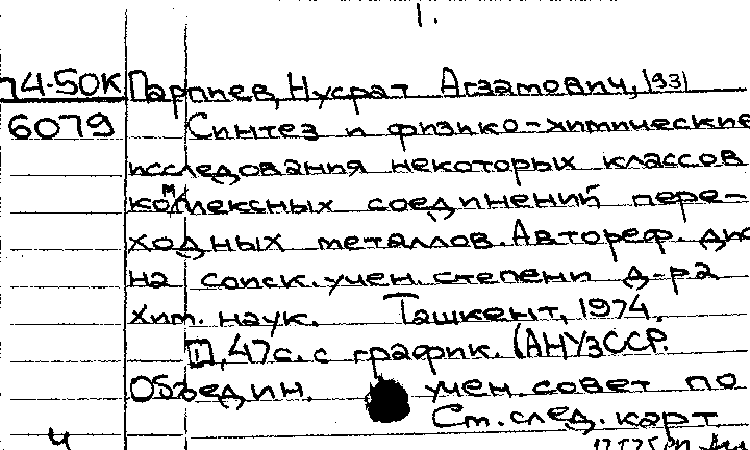 1.
74-50К Парпиев, Нусрат Агзамович, 1931
6079 Синтез и физико-химические
исследования некоторых классов
комплексных соединений пере-
ходных металлов. Автореф. дис
на соиск. учен. степени д-ра
хим. наук. Ташкент, 1974.
[1], 47с. с график. (АН УзССР.
Объедин. учен. совет по
Ст. след. карт
ч